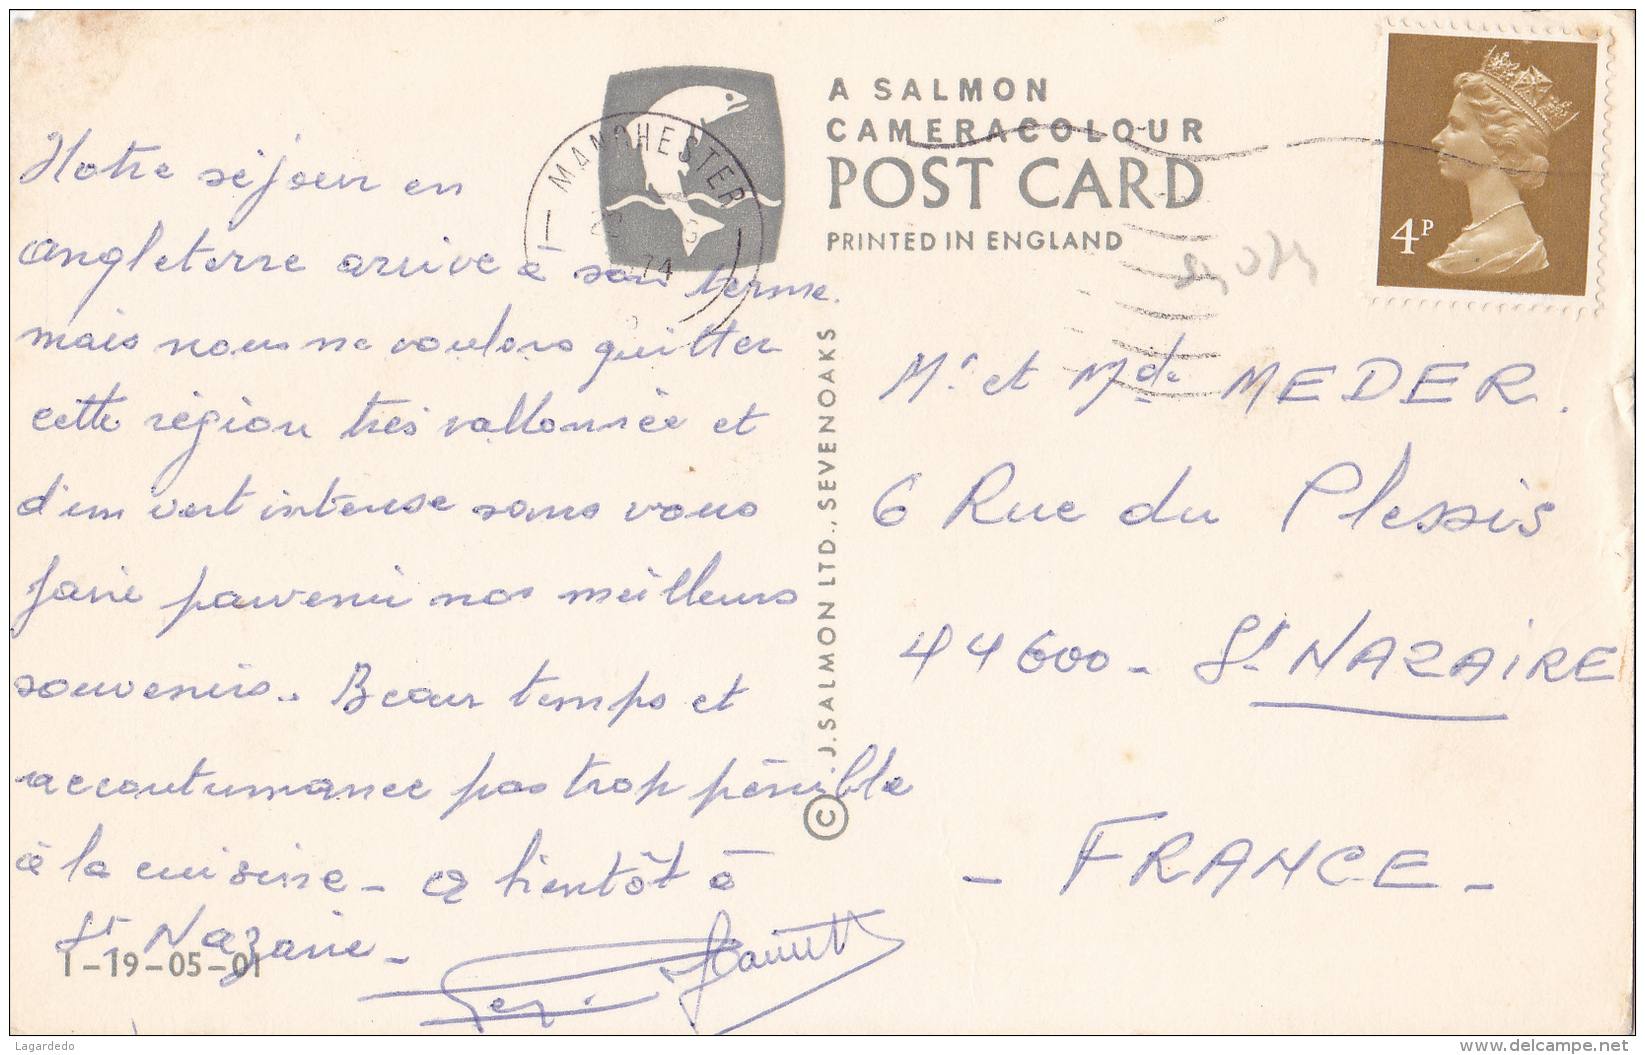 A SALMON
CAMERACOLOUR
POST CARD
PRINTED IN ENGLAND
MANCHESTER
4P
Notre séjour en
Angleterre arrive à son terme.
mais nous ne voulons quitter
cette région très vallonnée et
d'un vert intense sans vous
faire parvenir nos meilleurs
souvenirs. Beau temps et
accoutumance pas trop pénible
à la cuisine - à bientôt à
St Nazaire -
1-19-05-01
© J. SALMON LTD., SEVENOAKS
Mr et Mde MEDER.
6 Rue du Plessis
44600 - St NAZAIRE
- FRANCE -
Lagardedo
www.delcampe.net